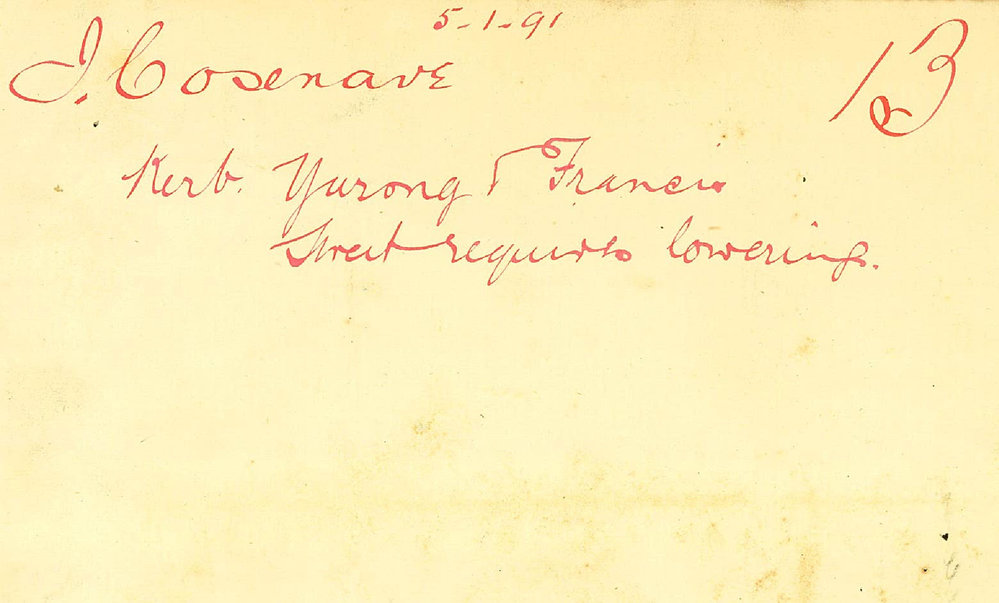 5-1-91
J. Cosenave
13
Kerb. Yurong & Francis
Street requires lowering.